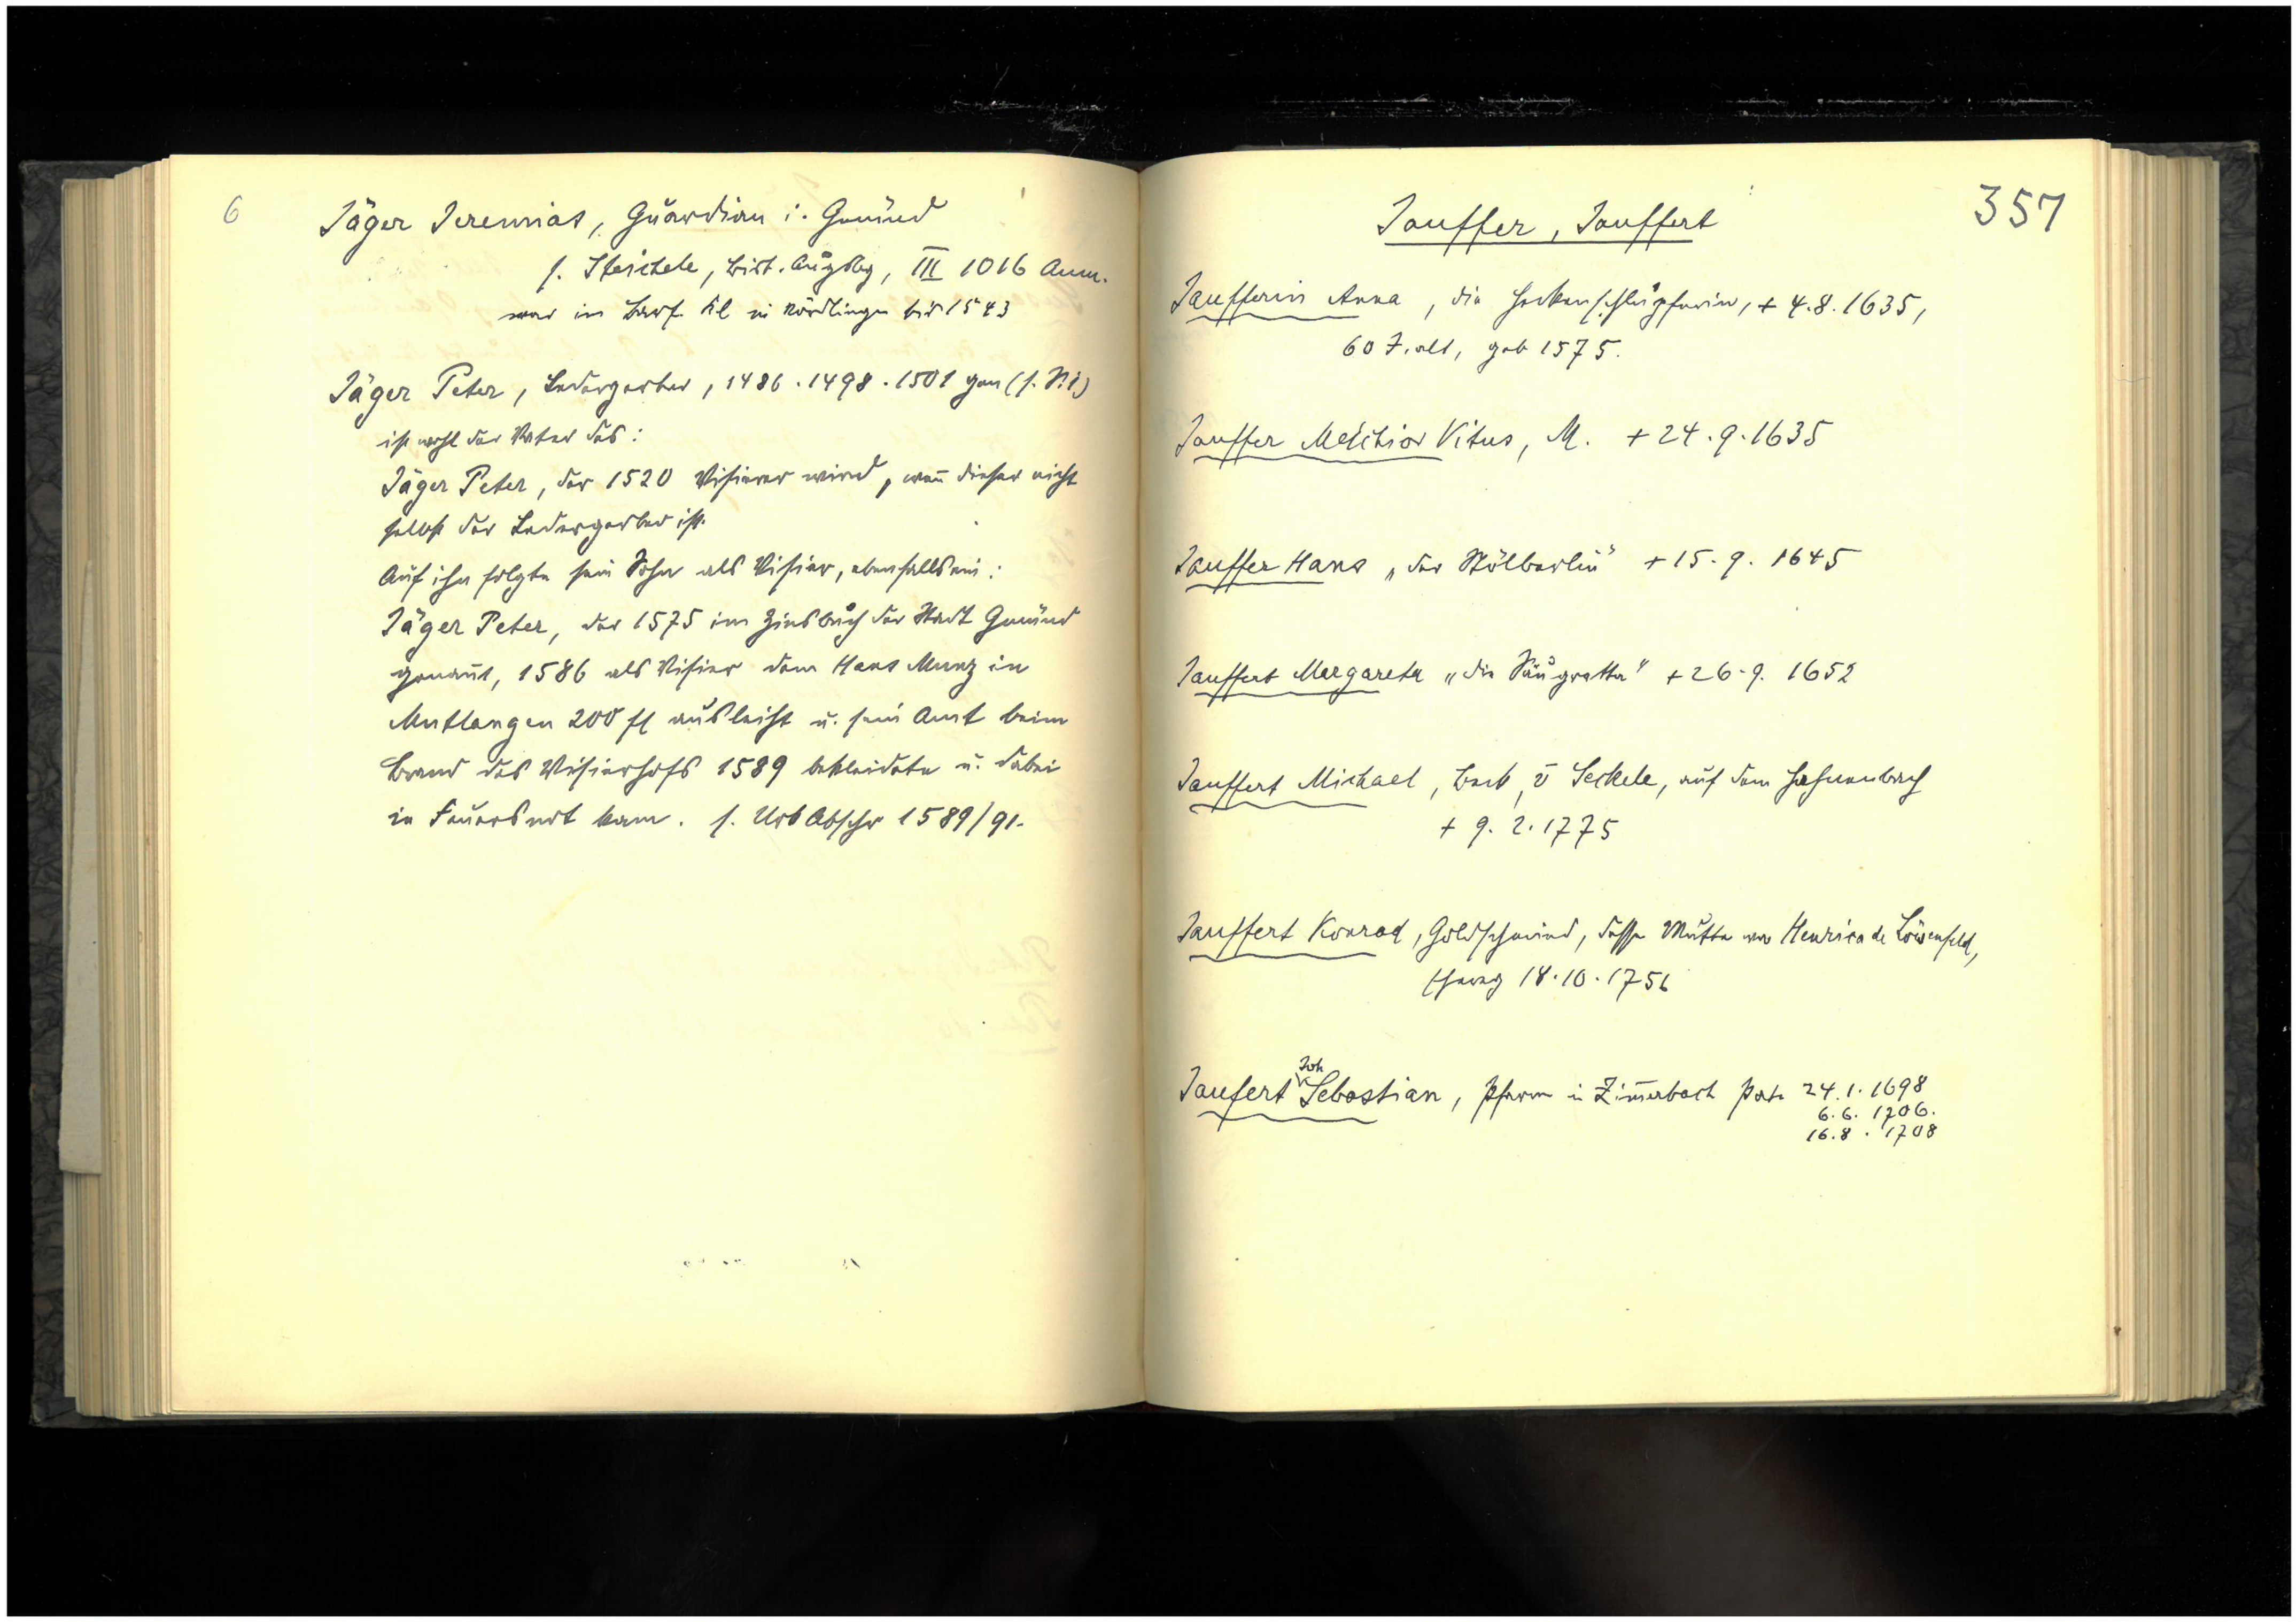 6
Jäger Jeremias, Guardian i. Gmünd
s. Steichele, Bist. Augsbg, III 1016 Anm.
war im Barf. Kl in Nördlingen bis 1543
Jäger Peter, Ledergerber, 1486 . 1498 . 1501 gen (s. N. 1)
ist wohl der Vater des:
Jäger Peter, der 1520 Visierer wird, wenn dieser nicht
selbst der Ledergerber ist.
Auf ihn folgte sein Sohn als Visier, ebenfalls ein:
Jäger Peter, der 1575 im Zinsbuch der Stadt Gmünd
genannt, 1586 als Visier dem Hans Munz in
Mutlangen 200 fl ausleiht u. sein Amt beim
Brand des Visierhofs 1589 bekleidete u. dabei
in Feuersnot kam. s. Urb Abschr 1589/91.
357
Jauffer, Jauffert
Jaufferin Anna, die Heckenschlupferin, + 4.8.1635,
60 J. alt, geb 1575.
Jauffer Melchior Vitus, M. + 24.9.1635
Jauffer Hans „der Stölberlin" + 15.9.1645
Jauffert Margareta „die Saugretta" + 26.9.1652
Jauffert Michael, Beck, v Seckele, auf dem Hahnenbach
+ 9.2.1775
Jauffert Konrad, Goldschmied, dessen Mutter war Henrica de Löwenfeld,
18.10.1756
Joh
Jaufert Sebastian, Pfarrer in Zimerbach Pate 24.1.1698
6.6.1706.
16.8.1708